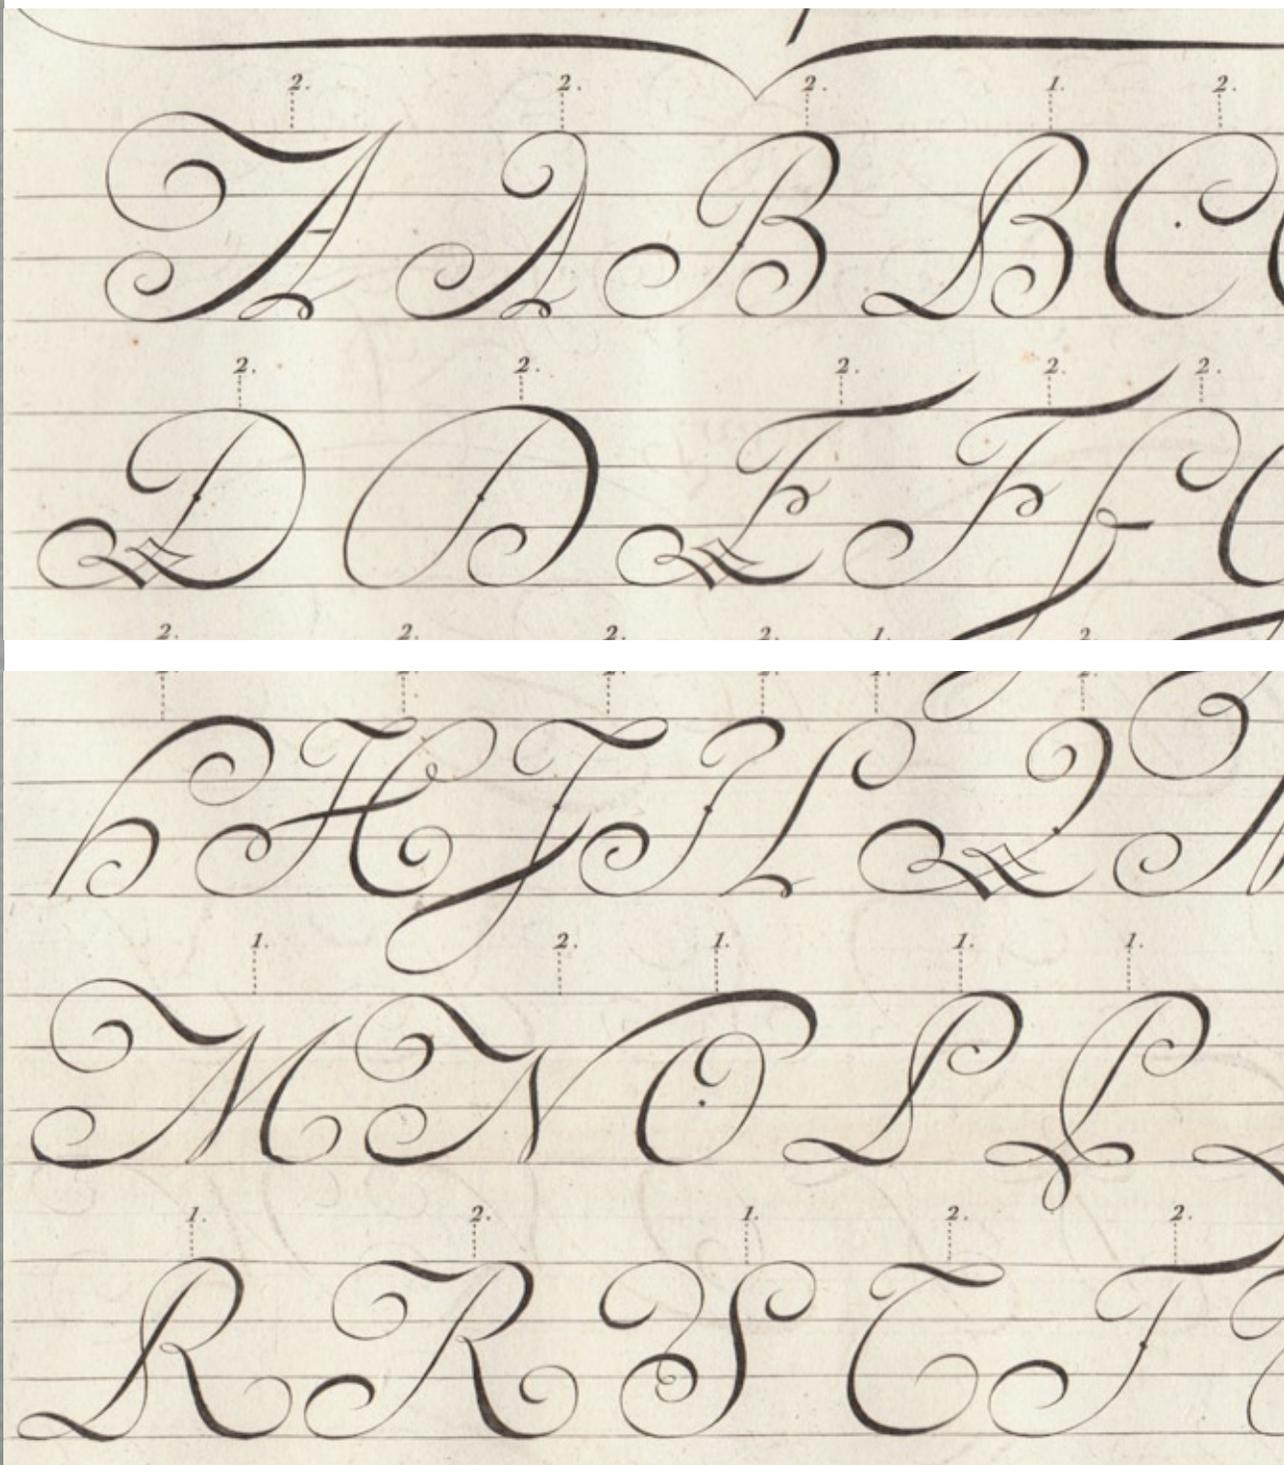 2. 2. 2. 1. 2.
A A B B C
2. 2. 2. 2. 2.
D D E F F
2. 2. 2. 2. 1. 2.
H H J I L L
1. 2. 1. 1. 1.
M N O P P
1. 2. 1. 2. 2.
R R S T T